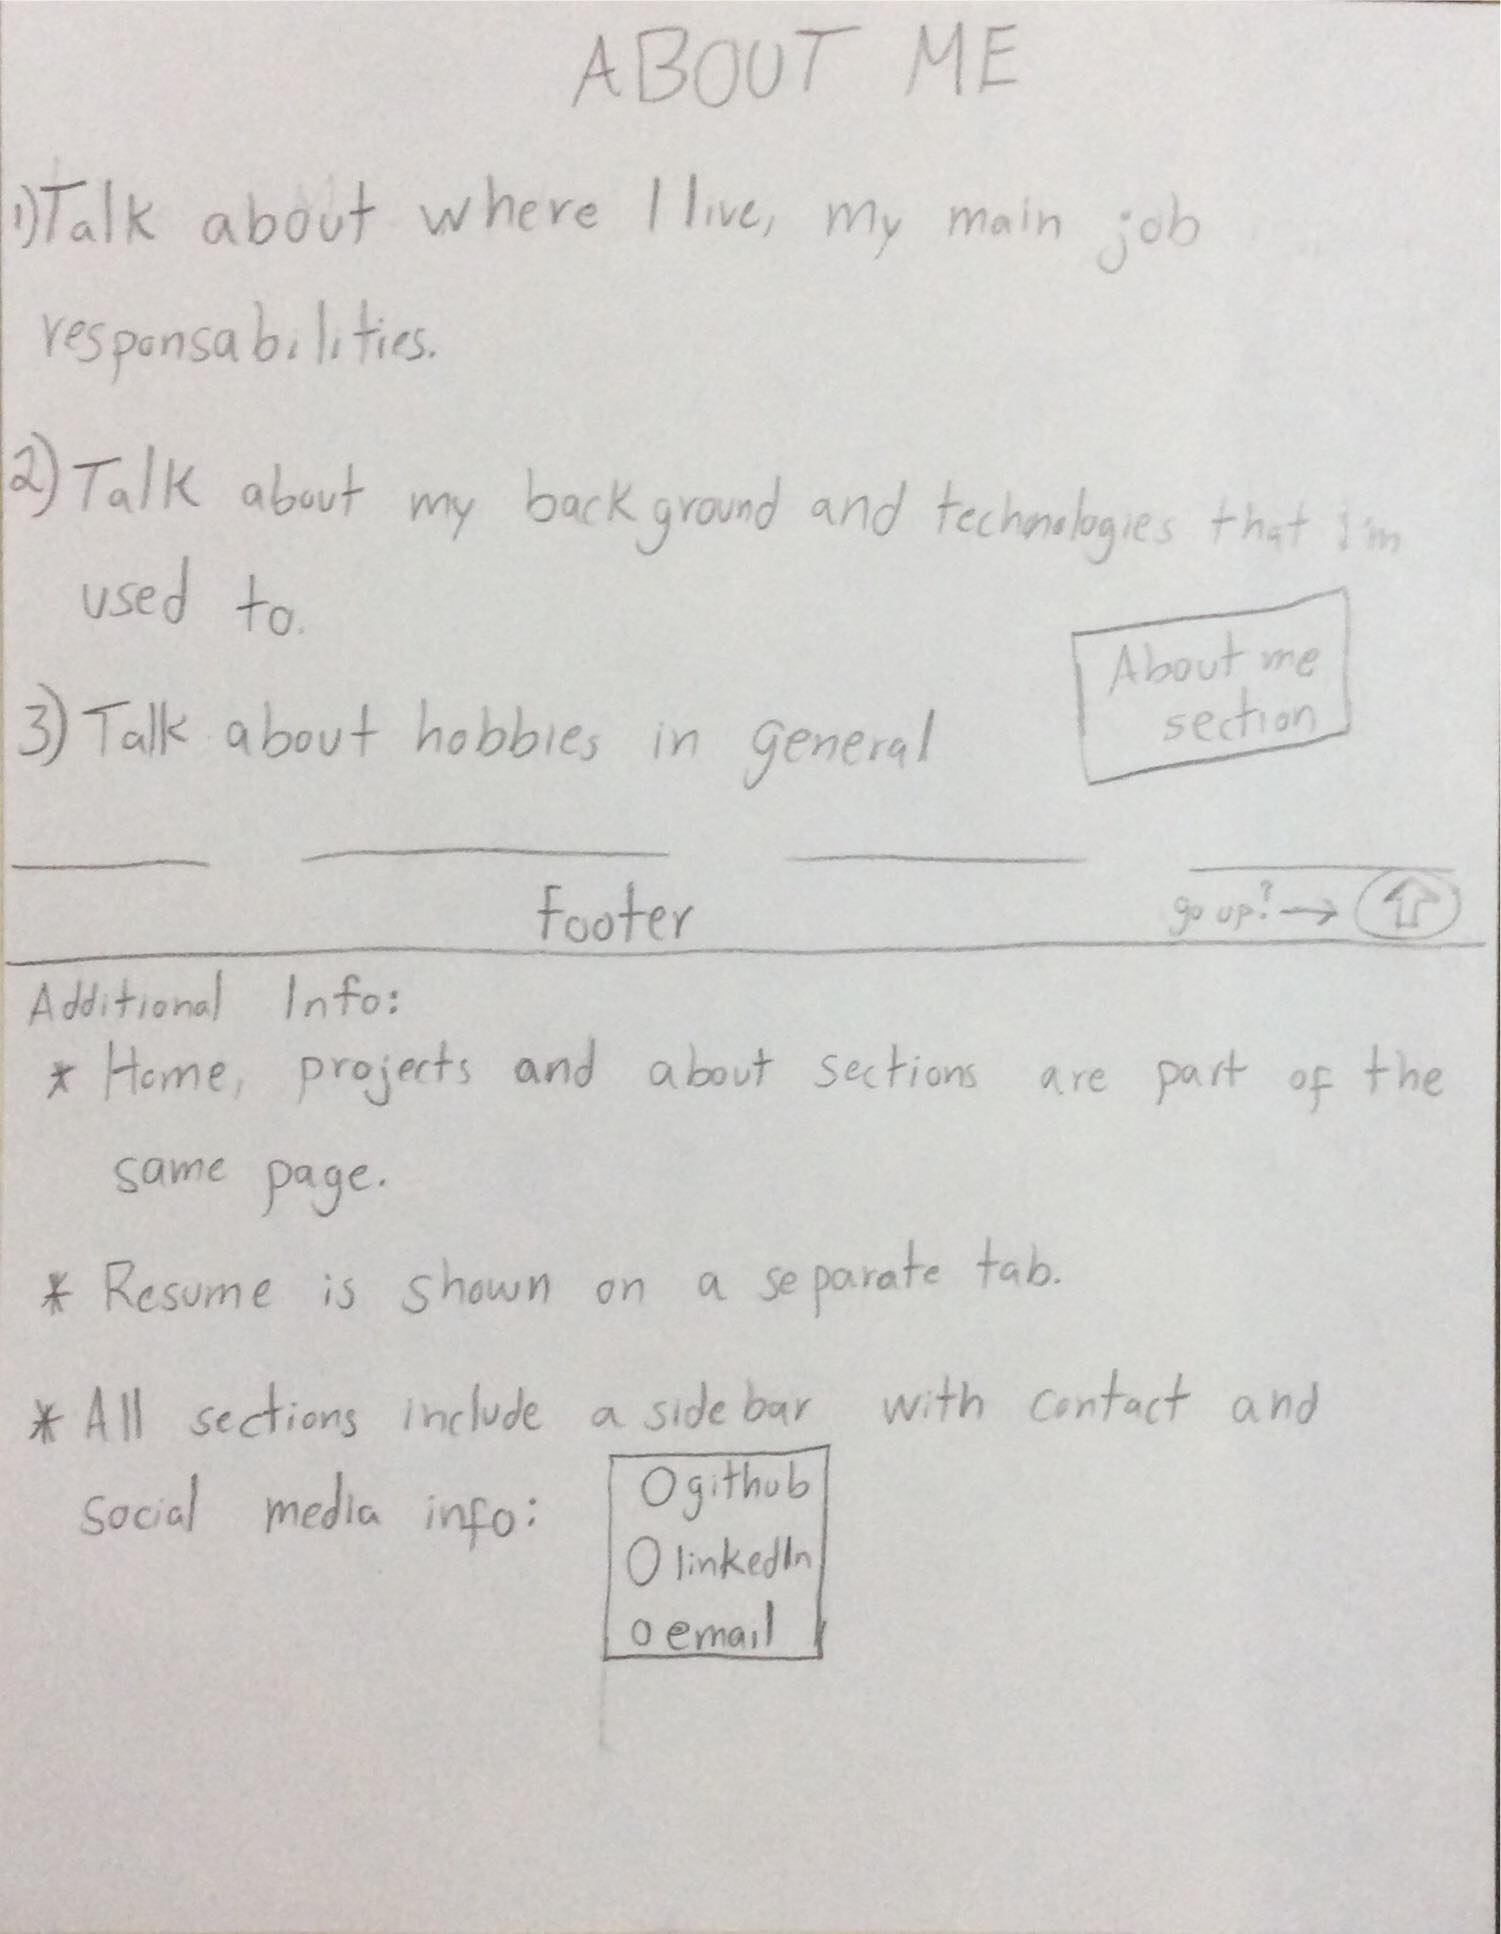 ABOUT ME
1) Talk about where I live, my main job
responsabilities.
2) Talk about my background and technologies that i'm
used to.
About me
section
3) Talk about hobbies in general
footer
go up? →
Additional Info:
* Home, projects and about sections are part of the
same page.
* Resume is shown on a separate tab.
* All sections include a sidebar with contact and
social media info:
github
linkedIn
email